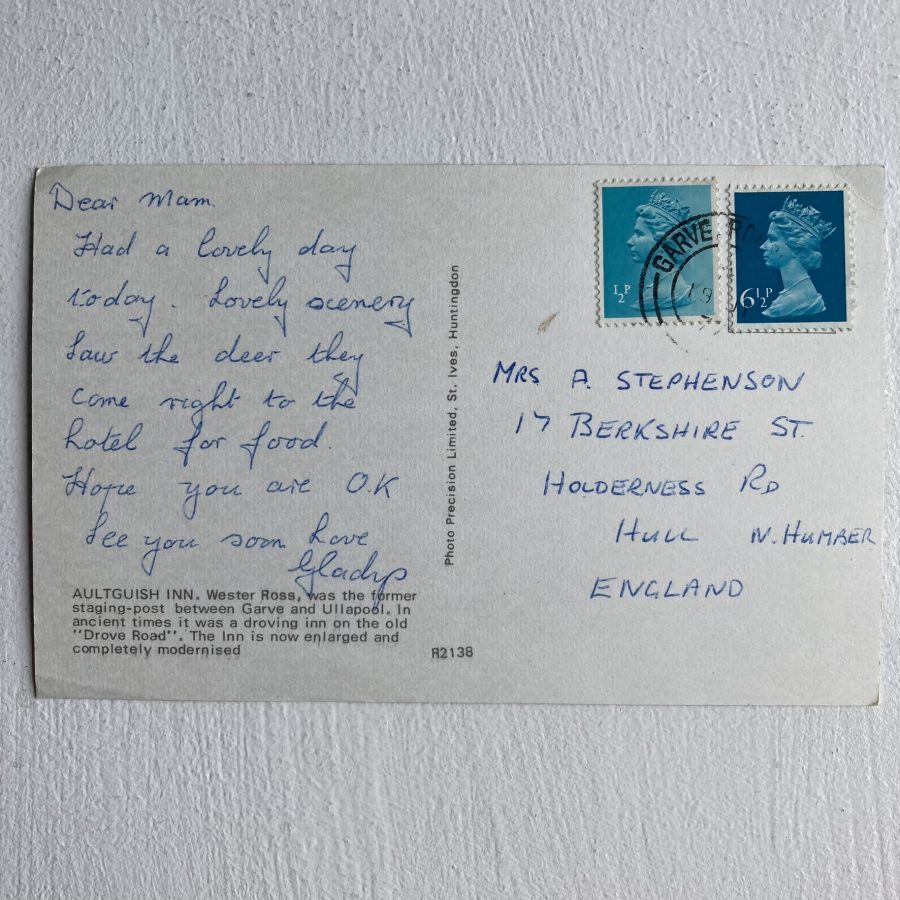 Dear Mam.
Had a lovely day
today. Lovely scenery
Saw the deer they
come right to the
hotel for food.
Hope you are O.K
See you soon Love
Gladys
AULTGUISH INN. Wester Ross, was the former
staging-post between Garve and Ullapool. In
ancient times it was a droving inn on the old
"Drove Road". The Inn is now enlarged and
completely modernised
R2138
Photo Precision Limited, St. Ives, Huntingdon
½P
6½P
GARVE
MRS A. STEPHENSON
17 BERKSHIRE ST.
HOLDERNESS RD
HULL N. HUMBER
ENGLAND